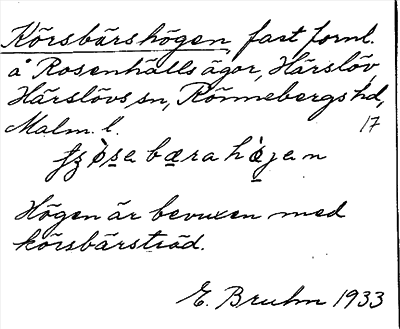 Körsbärshögen, fast fornl.
å Rosenhälls ägor, Härslöv,
Härslövs sn, Rönnebergs hd,
Malm. l. 17
Högen är bevuxen med
körsbärsträd.
E. Bruhn 1933